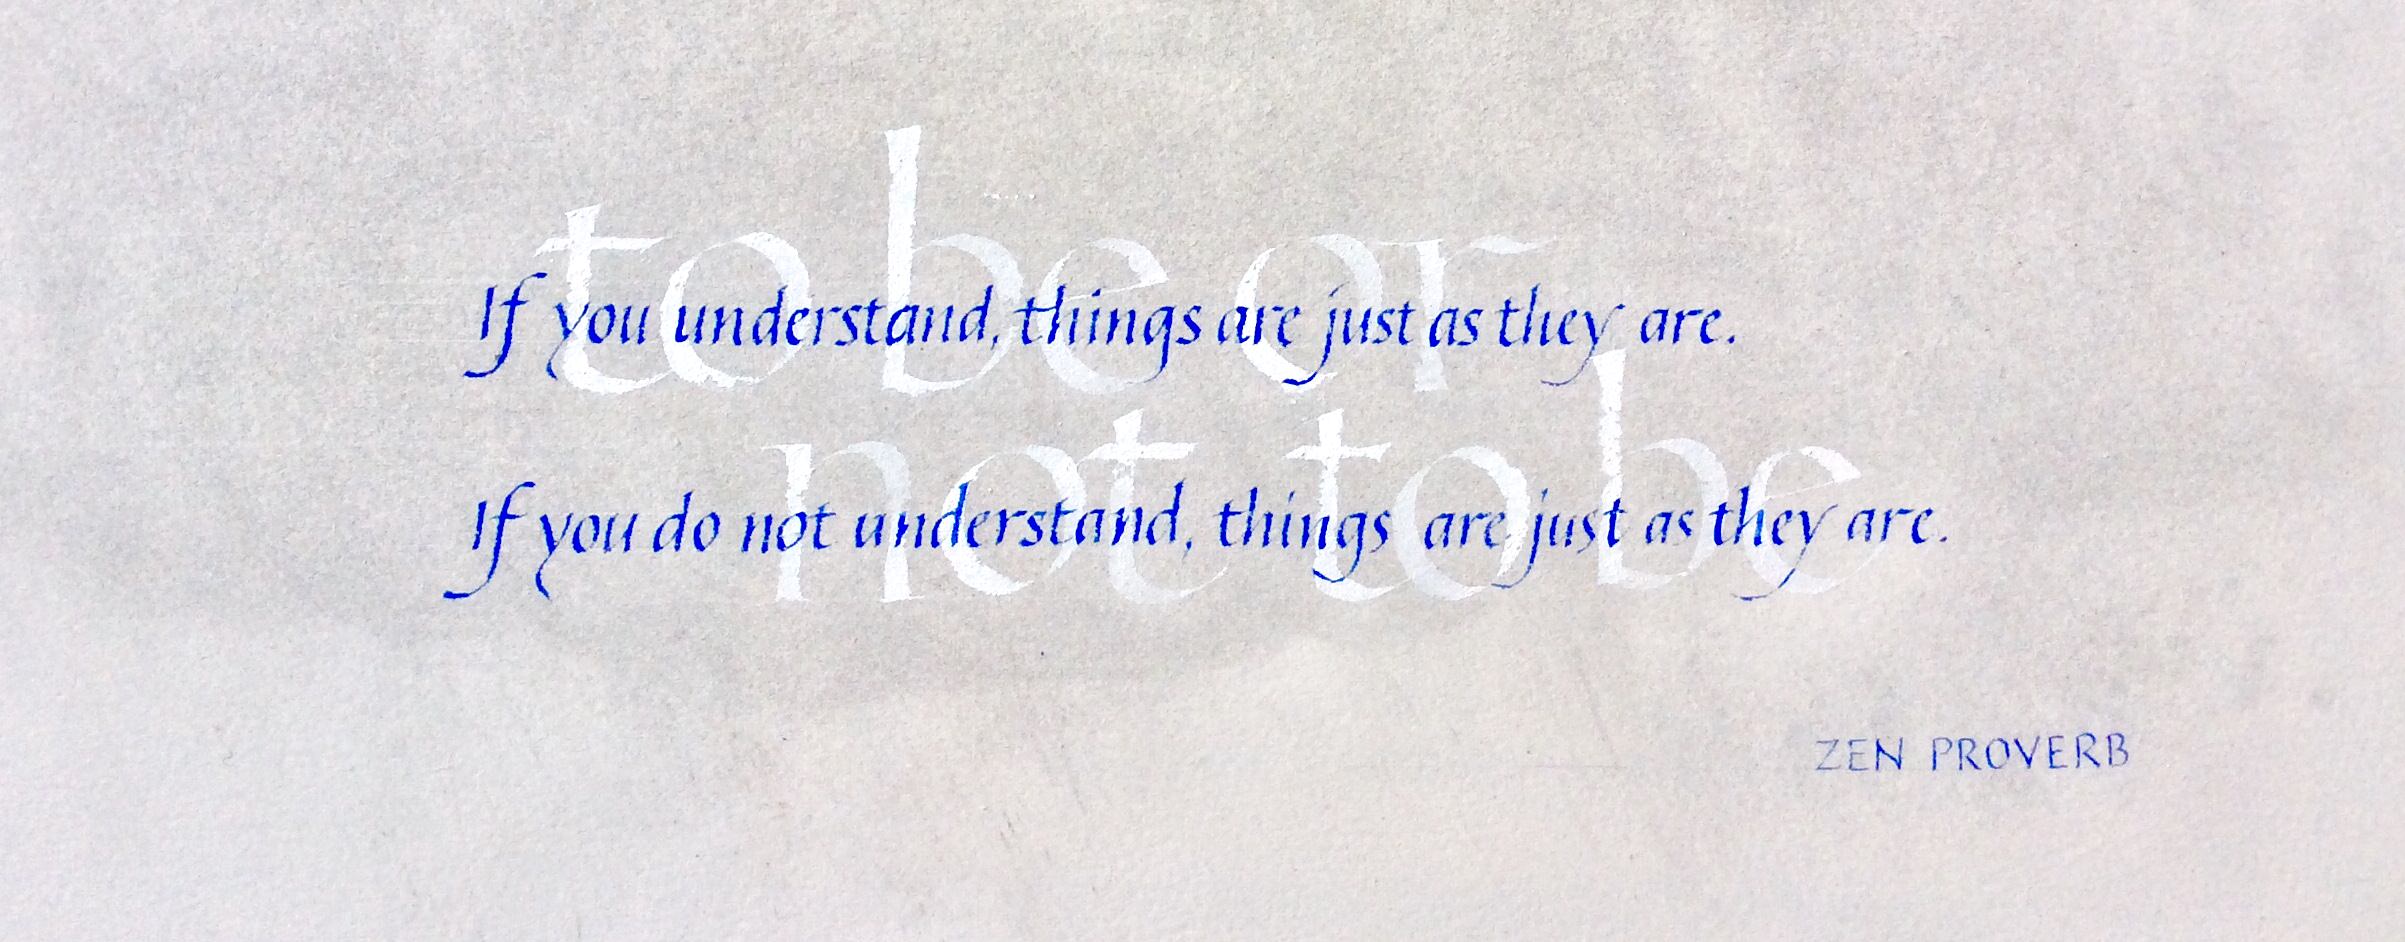 to be or
If you understand, things are just as they are.
not to be
If you do not understand, things are just as they are.
ZEN PROVERB